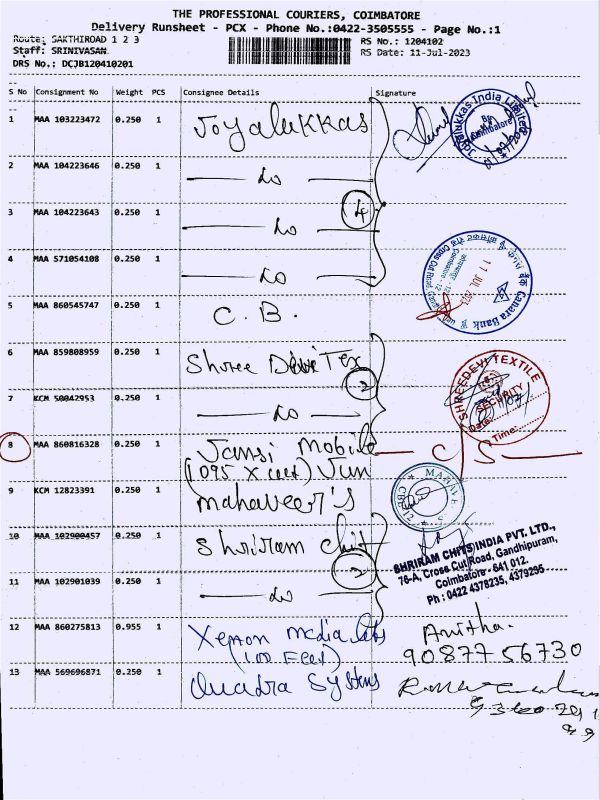 THE PROFESSIONAL COURIERS, COIMBATORE
Delivery Runsheet - PCX - Phone No.:0422-3505555 - Page No.:1
Route: SAKTHIROAD 1 2 3 RS No.: 1204102
Staff: SRINIVASAN RS Date: 11-Jul-2023
DRS No.: DCJB120410201
S No Consignment No Weight PCS Consignee Details Signature
1 MAA 103223472 0.250 1 Joyalukkas
Joyalukkas India Limited
Coimbatore
2 MAA 104223646 0.250 1 — do —
3 MAA 104223643 0.250 1 — do —
4
4 MAA 571054108 0.250 1 — do —
Canara Bank
Cross Cut Road,
11 JUL 2023
5 MAA 860545747 0.250 1 C. B.
6 MAA 859808959 0.250 1 Shree Devi Tex
2
SHREEDEVI TEXTILE
SECURITY
Date:
Time:
7 KCM 50042953 0.250 1 — do —
8 MAA 860816328 0.250 1 Jansi Mobile
C/S
9 KCM 12823391 0.250 1 mahaveer's
10 MAA 102900457 0.250 1 Shriram Chit
2
SHRIRAM CHITS INDIA PVT. LTD.,
76-A, Cross Cut Road, Gandhipuram,
Coimbatore - 641 012.
Ph : 0422 4378235, 4379295
11 MAA 102901039 0.250 1 — do —
12 MAA 860275813 0.955 1 Xenon media labs
(100 Feet)
Anitha.
90877 56730
13 MAA 569696871 0.250 1 Quadra Systems